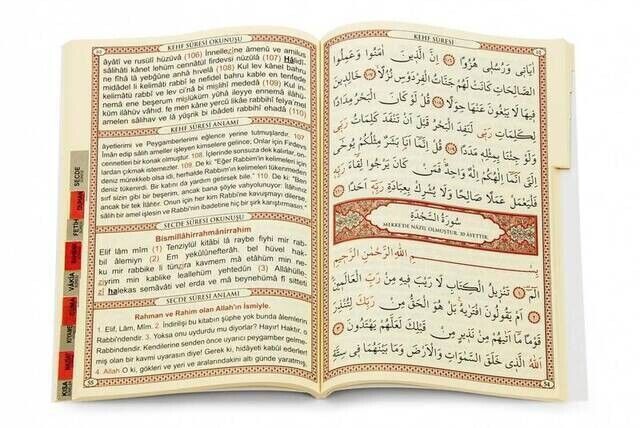 KEHF SÛRESİ OKUNUŞU
âyâtî ve rusulî hüzüvâ (106) İnnellezine âmenû ve amilus
sâlihâti kânet lehüm cennâtül firdevsi nüzülâ (107) Hâlidî-
ne fîhâ lâ yebğûne anhâ hıvelâ (108) Kul lev kânel bahru
midâdel li kelimâti rabbî le nefidel bahru kable en tenfede
kelimâtü rabbî ve lev ci'nâ bi mislihî mededâ (109) Kul in-
nemâ ene beşerum mislüküm yûhâ ileyye ennemâ ilâhü-
küm ilâhüv vâhid, fe men kâne yercû likâe rabbihî felya'mel
amelen sâlihav ve lâ yüşrik bi ıbâdeti rabbihî ehadâ (110)
KEHF SÛRESİ ANLAMI
âyetlerimi ve Peygamberlerimi eğlence yerine tutmuşlardır. 107
İman edip sâlih ameller işleyen kimselere gelince; Onlar için Firdevs
cennetleri bir konak olmuştur. 108. İçlerinde sonsuza dek kalırlar, on-
lardan çıkmak istemezler. 109. De ki: "Eğer Rabbim'in kelimeleri için
deniz mürekkeb olsa idi, herhalde Rabbimin kelimeleri tükenmeden
deniz tükenirdi. Bir katını da yardım getirsek bile." 110. De ki: "Ben
sırf sizin gibi bir beşerim, ancak bana şöyle vahyolunuyor: İlâhınız
ancak bir tek ilâhtır. Onun için her kim Rabbi'ne kavuşmayı dilerse,
sâlih bir amel işlesin ve Rabbi'nin ibadetine hiç bir şirk karıştırmasın."
SECDE SÛRESİ OKUNUŞU
Bismillâhirrahmânirrahim
Elif lâm mîm (1) Tenzîylül kitâbi lâ raybe fîyhi mir rab-
bil âlemiyn (2) Em yekûlûnefterâh, bel hüvel hak-
ku mir rabbike li tünzira kavmem mâ etâhüm min ne-
ziyrim min kablike leallehüm yehtedûn (3) Allâhülle-
zî halekas semâvâti vel erda ve mâ beynehümâ fî sitteti
SECDE SÛRESİ ANLAMI
Rahman ve Rahim olan Allah'ın İsmiyle.
1. Elif, Lâm, Mîm. 2. İndirilişi bu kitabın şüphe yok bunda âlemlerin
Rabbi'ndendir. 3. Yoksa onu uydurdu mu diyorlar? Hayır! Haktır, o
Rabbi'ndendir. Kendilerine senden önce uyarıcı peygamber gelme-
miş olan bir kavmi uyarasın diye! Gerek ki, hidâyeti kabul ederler!
4. Allah O ki, gökleri ve yeri ve aralarındakini altı günde yaratmış,
55
SECDE
DUHAN
FETİH
VAKIA
KEHF SÛRESİ
اٰيَاتٖى وَرُسُلٖى هُزُوًا ﴿١٠٦﴾ اِنَّ الَّذٖينَ اٰمَنُوا وَعَمِلُوا
الصَّالِحَاتِ كَانَتْ لَهُمْ جَنَّاتُ الْفِرْدَوْسِ نُزُلًا ﴿١٠٧﴾ خَالِدٖينَ
فٖيهَا لَا يَبْغُونَ عَنْهَا حِوَلًا ﴿١٠٨﴾ قُلْ لَوْ كَانَ الْبَحْرُ مِدَادًا
لِكَلِمَاتِ رَبّٖى لَنَفِدَ الْبَحْرُ قَبْلَ اَنْ تَنْفَدَ كَلِمَاتُ رَبّٖى
وَلَوْ جِئْنَا بِمِثْلِهٖ مَدَدًا ﴿١٠٩﴾ قُلْ اِنَّمَا اَنَا بَشَرٌ مِثْلُكُمْ يُوحٰى
اِلَىَّ اَنَّمَا اِلٰهُكُمْ اِلٰهٌ وَاحِدٌ فَمَنْ كَانَ يَرْجُوا لِقَاءَ رَبِّهٖ
فَلْيَعْمَلْ عَمَلًا صَالِحًا وَلَا يُشْرِكْ بِعِبَادَةِ رَبِّهٖ اَحَدًا ﴿١١٠﴾
سُورَةُ السَّجْدَةِ
MEKKE'DE NÂZİL OLMUŞTUR. 30 ÂYETTİR.
بِسْمِ اللّٰهِ الرَّحْمٰنِ الرَّحٖيمِ
الٓمٓ ﴿١﴾ تَنْزٖيلُ الْكِتَابِ لَا رَيْبَ فٖيهِ مِنْ رَبِّ الْعَالَمٖينَ ﴿٢﴾
اَمْ يَقُولُونَ افْتَرٰيهُ بَلْ هُوَ الْحَقُّ مِنْ رَبِّكَ لِتُنْذِرَ
قَوْمًا مَا اَتٰيهُمْ مِنْ نَذٖيرٍ مِنْ قَبْلِكَ لَعَلَّهُمْ يَهْتَدُونَ ﴿٣﴾
اَللّٰهُ الَّذٖى خَلَقَ السَّمٰوَاتِ وَالْاَرْضَ وَمَا بَيْنَهُمَا فٖى سِتَّةِ
54